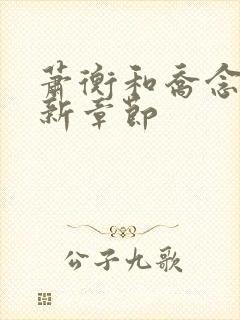 萧衡和乔念
新章节
公子九歌